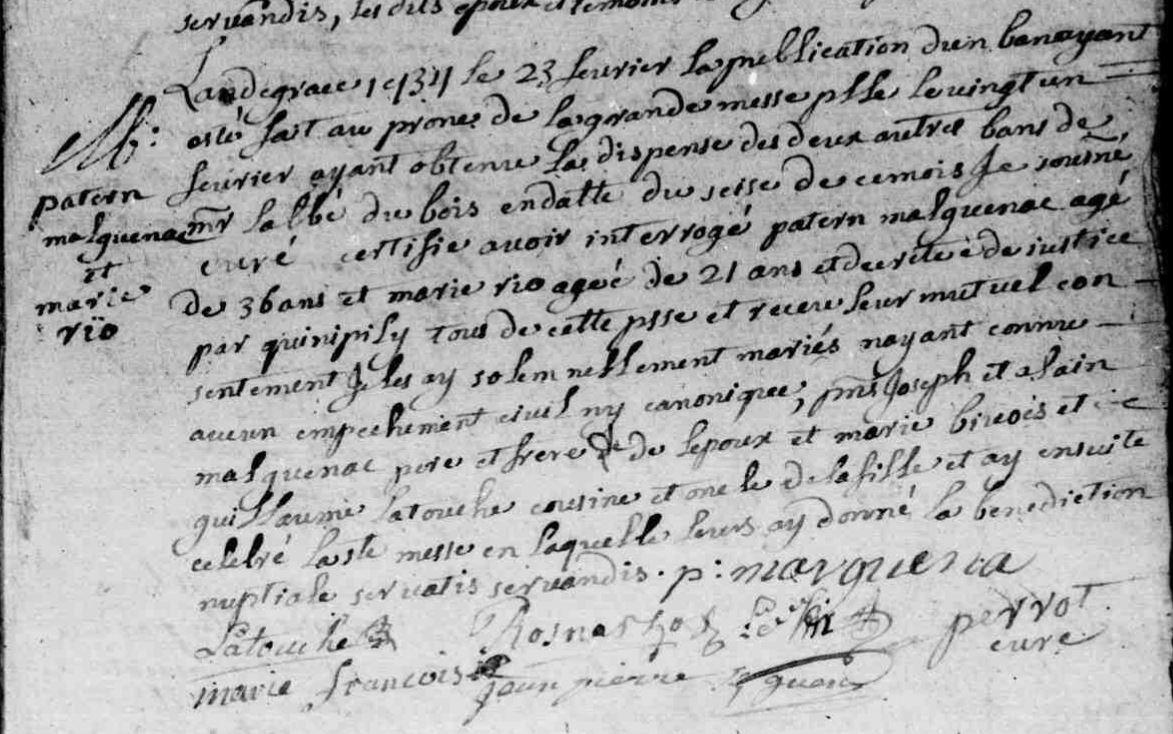 servandis, les dits epoux et temoins
Lan de grace 1734 le 23 fevrier la publication d'un ban ayant
esté fait au prone de la grande messe plle le vingt un
fevrier ayant obtenue la dispense des deux autres bans de
mr labbé du bois en datte du seise de ce mois Je sousné
curé certifie avoir interrogé patern malquenac agé
de 36 ans et marie rio ageé de 21 ans et decreteé de justice
par quinipily tous de cette psse et receu leur mutuel con-
sentement Je les ay solemnellement mariés nayant connu
aucun empechement civil ny canonique, pnts Joseph et alain
malquenac pere et frere de lepoux et marie bivois et
guillaume latouche cousine et oncle de la fille et ay ensuite
celebré la ste messe en laquelle leurs ay donné la benediction
nuptiale servatis servandis. p: marquena
M:
patern
malquenac
et
marie
rïo
Latouche
perrot
curé
marie francois jean pierre